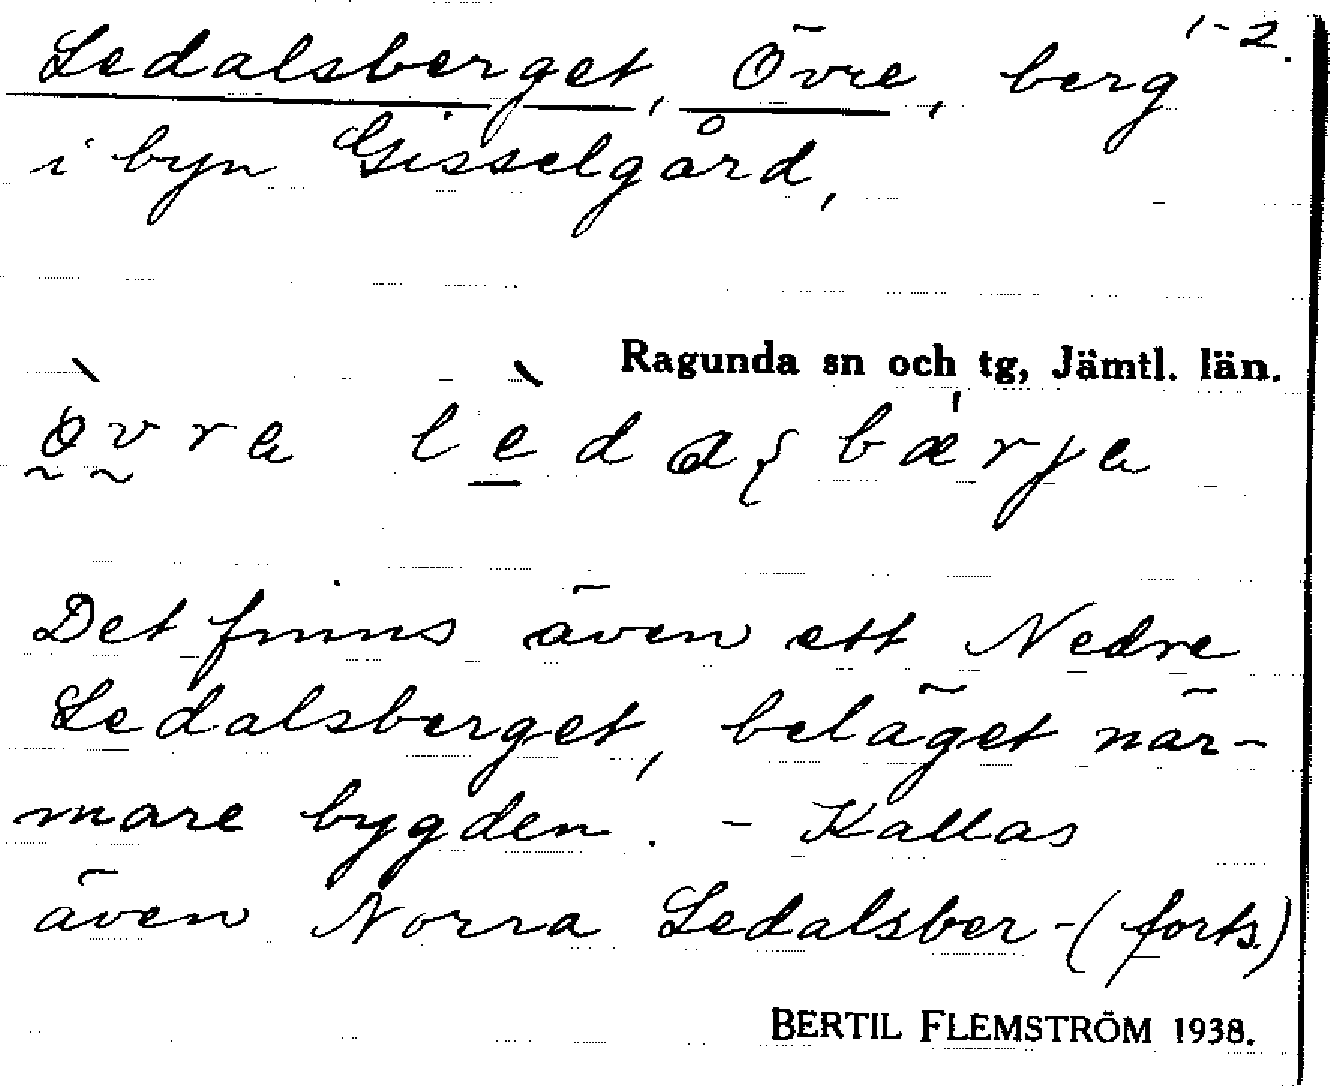 1-2.
Ledalsberget, Övre, berg
i byn Gisselgård,
Ragunda sn och tg, Jämtl. län.
Det finns även ett Nedre
Ledalsberget, beläget när-
mare bygden. - Kallas
även Norra Ledalsber- (forts.)
BERTIL FLEMSTRÖM 1938.